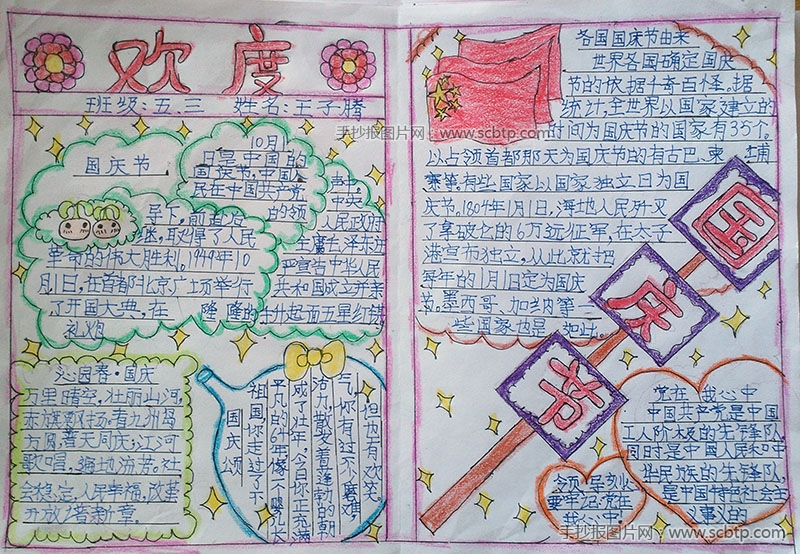 欢度
班级:五.三 姓名:王子腾
手抄报图片网 www.scbtp.com
国庆节
10月1
日是中国的
国庆节,中国人
民在中国共产党
的领
导下,前赴后
继,取得了人民
革命的伟大胜利。1949年10
月1日,在首都北京广场举行
了开国大典,在 隆隆的
礼炮
中央
人民政府
主席毛泽东庄
严宣告中华人民
共和国成立并亲
手升起面五星红旗
沁园春·国庆
万里晴空,壮丽山河,
赤旗飘扬。看九州岛
方圆,普天同庆;江河
歌唱,遍地流芳。社
会稳定,人民幸福,改革
开放谱新章。
国庆颂
祖国你走过了不
平凡的64年像一
成了壮年,今日你正充满
洁力,散发着蓬勃的朝
气,你有过不少磨难
但也有欢笑。
各国国庆节由来
世界各国确定国庆
节的依据千奇百怪。据
统计,全世界以国家建立的
时间为国庆节的国家有35个。
以占领首都那天为国庆节的有古巴、柬埔
寨等。有些国家以国家独立日为国
庆节。1804年1月1日,海地人民歼灭
了拿破仑的6万远征军,在太子
港宣布独立,从此就把
每年的1月1日定为国庆
节。墨西哥、加纳等
一些国家也是如此。
国
庆
节
党在我心中
中国共产党是中国
工人阶级的先锋队,
同时是中国人民和中
华民族的先锋队,
是中国特色社会主
义事业的
领导
要牢记党在
我心中
手抄报图片网:www.scbtp.com